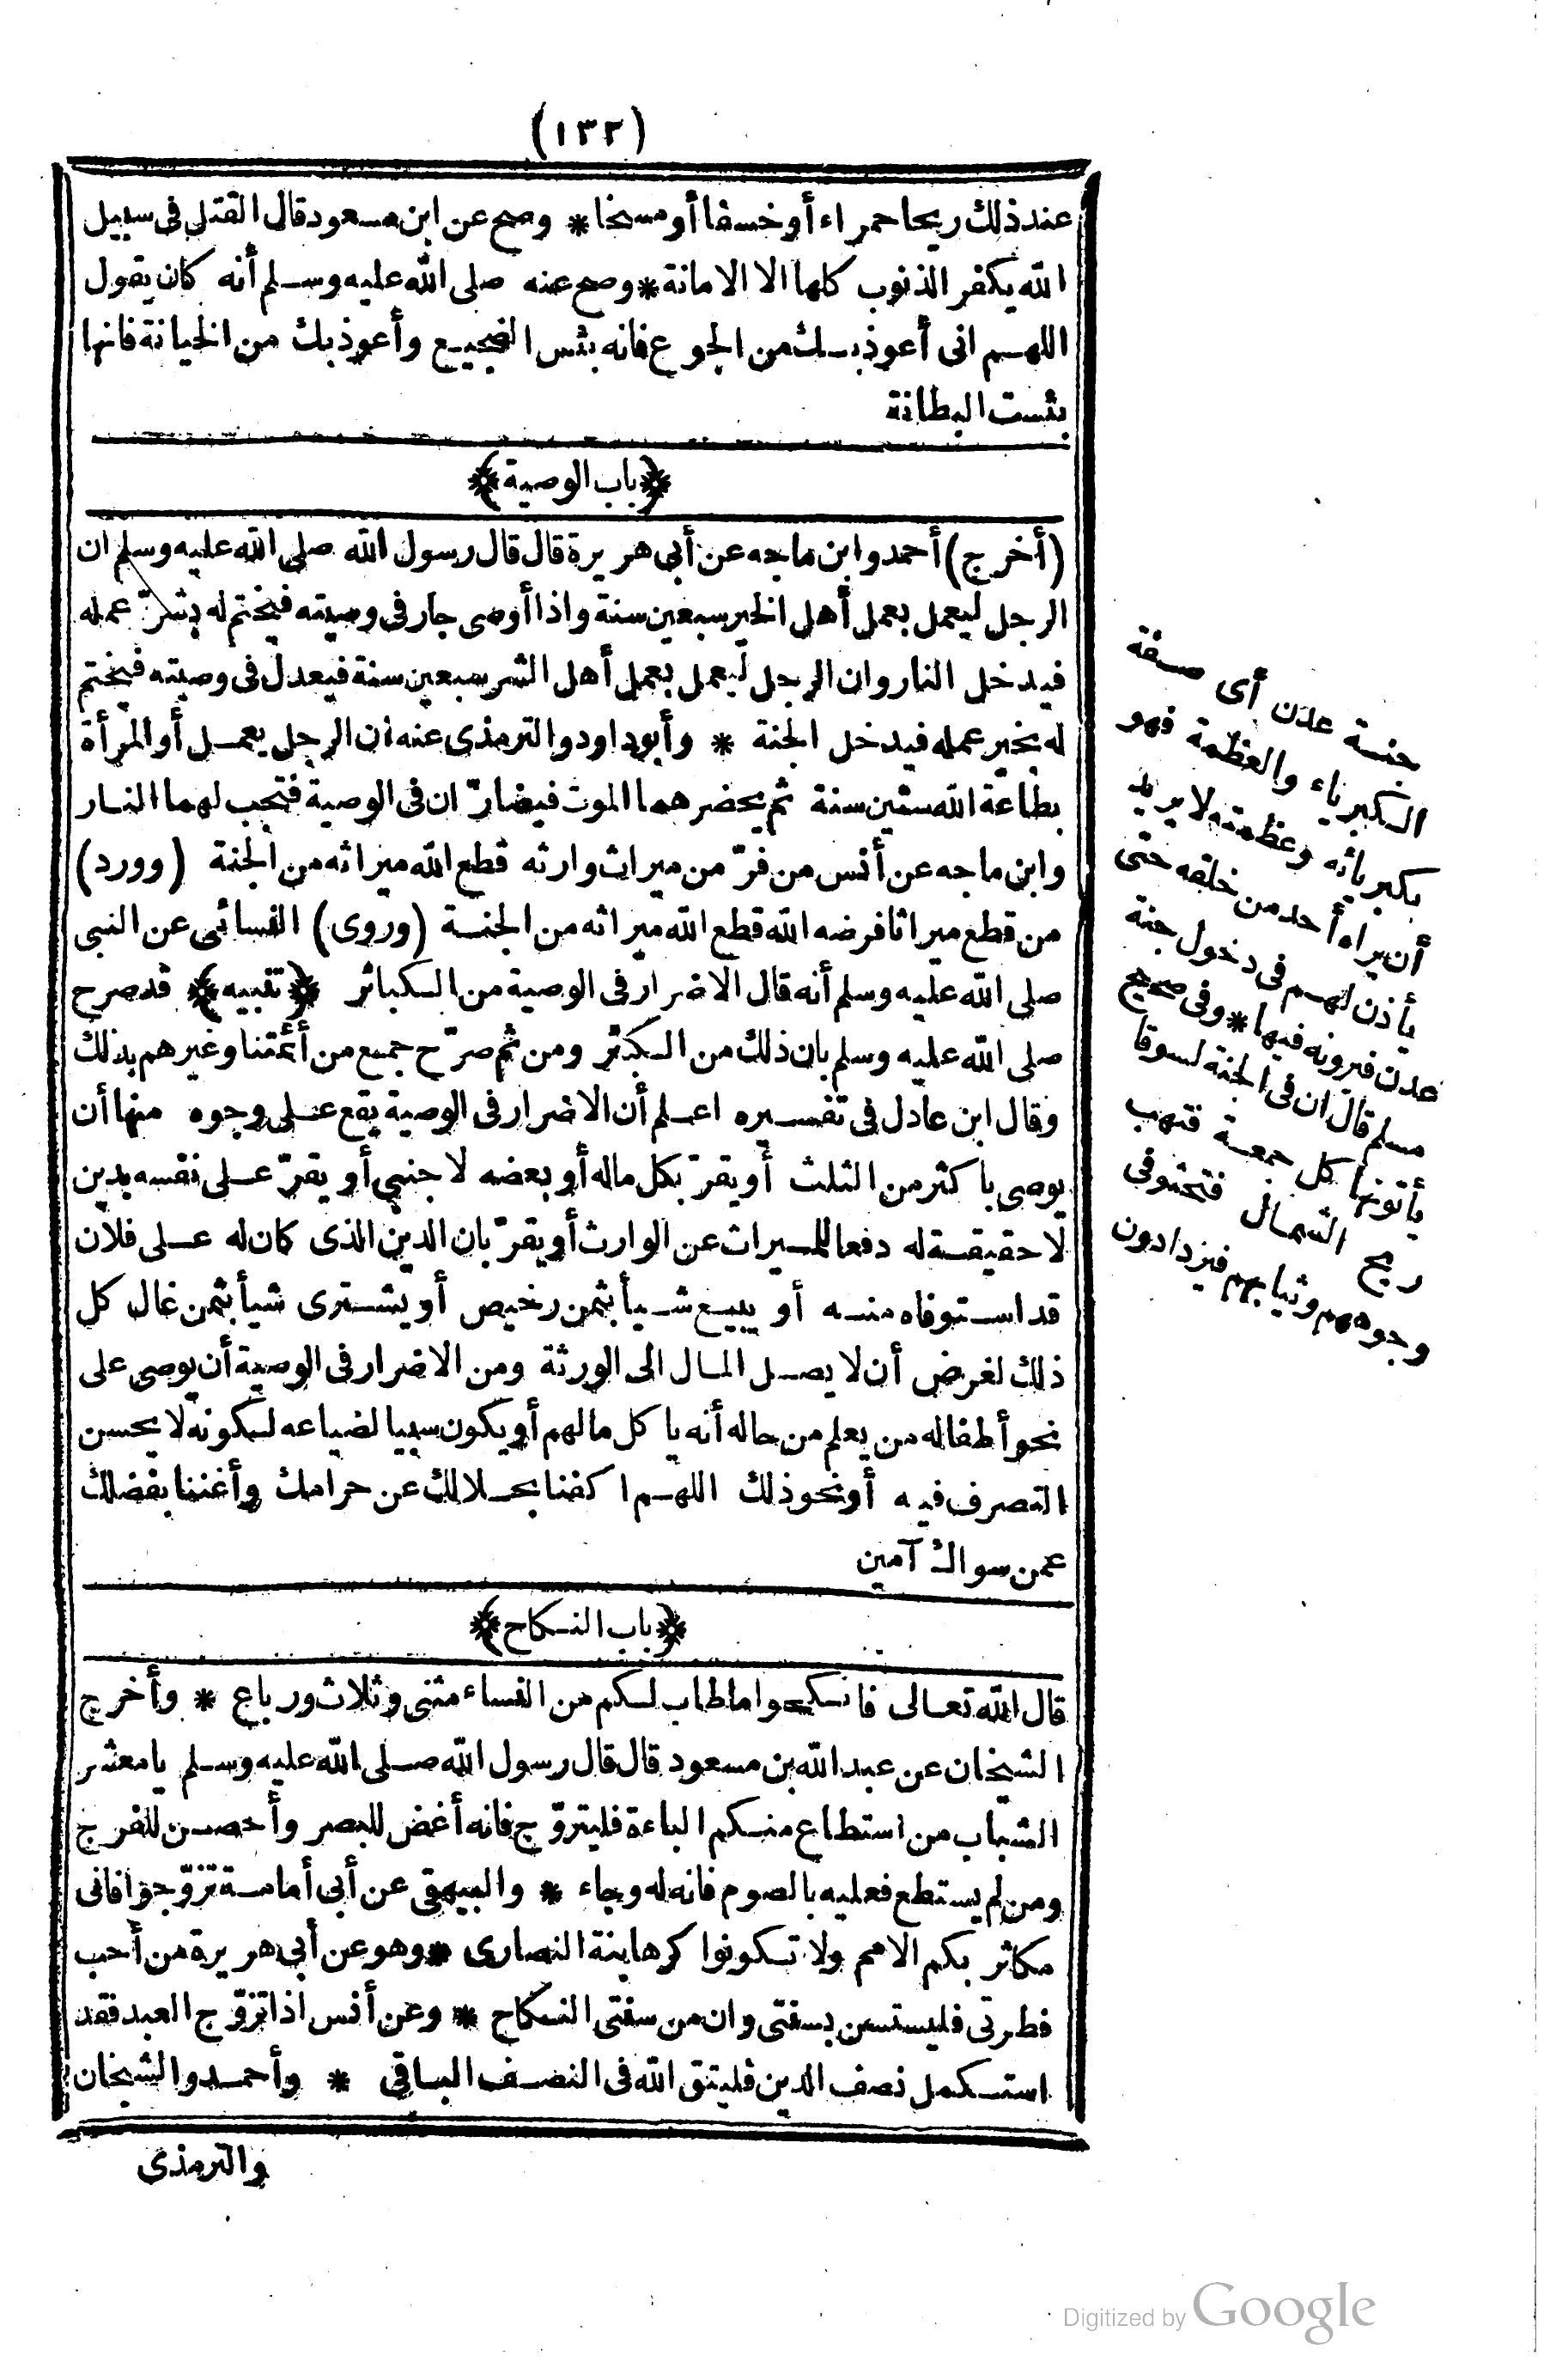 (١٣٢)
عند ذلك ريحا حمراء أو خسفا أو مسخا * وصح عن ابن مسعود قال القتل فى سبيل
الله يكفر الذنوب كلها الا الامانة * وصح عنه صلى الله عليه وسلم أنه كان يقول
اللهم انى أعوذ بك من الجوع فانه بئس الضجيع وأعوذ بك من الخيانة فانها
بئست البطانة
﴿باب الوصية﴾
(أخرج) أحمد وابن ماجه عن أبى هريرة قال قال رسول الله صلى الله عليه وسلم ان
الرجل ليعمل بعمل أهل الخير سبعين سنة واذا أوصى جار فى وصيته فيختم له بشرّ عمله
فيدخل النار وان الرجل ليعمل بعمل أهل الشر سبعين سنة فيعدل فى وصيته فيختم
له بخير عمله فيدخل الجنة * وأبو داود والترمذى عنه ان الرجل يعمل أو المرأة
بطاعة الله ستين سنة ثم يحضرهما الموت فيضارّان فى الوصية فتجب لهما النار
وابن ماجه عن أنس من فرّ من ميراث وارثه قطع الله ميراثه من الجنة (وورد)
من قطع ميراثا فرضه الله قطع الله ميراثه من الجنة (وروى) النسائى عن النبى
صلى الله عليه وسلم أنه قال الاضرار فى الوصية من الكبائر ﴿تنبيه﴾ قد صرح
صلى الله عليه وسلم بان ذلك من الكبائر ومن ثم صرّح جميع من أئمتنا وغيرهم بذلك
وقال ابن عادل فى تفسيره اعلم أن الاضرار فى الوصية يقع على وجوه منها أن
يوصى باكثر من الثلث أو يقرّ بكل ماله أو بعضه لاجنبى أو يقرّ على نفسه بدين
لا حقيقة له دفعا للميراث عن الوارث أو يقرّ بان الدين الذى كان له على فلان
قد استوفاه منه أو يبيع شيأ بثمن رخيص أو يشترى شيأ بثمن غال كل
ذلك لغرض أن لا يصل المال الى الورثة ومن الاضرار فى الوصية أن يوصى على
نحو أطفاله من يعلم من حاله أنه ياكل مالهم أو يكون سببا لضياعه لكونه لا يحسن
التصرف فيه أو نحو ذلك اللهم اكفنا بحلالك عن حرامك وأغننا بفضلك
عمن سواك آمين
﴿باب النكاح﴾
قال الله تعالى فانكحوا ما طاب لكم من النساء مثنى وثلاث ورباع * وأخرج
الشيخان عن عبد الله بن مسعود قال قال رسول الله صلى الله عليه وسلم يا معشر
الشباب من استطاع منكم الباءة فليتزوّج فانه أغض للبصر وأحصن للفرج
ومن لم يستطع فعليه بالصوم فانه له وجاء * والبيهقى عن أبى أمامة تزوّجوا فانى
مكاثر بكم الامم ولا تكونوا كرهابنة النصارى * وهو عن أبى هريرة من أحب
فطرتى فليستسن بسنتى وان من سنتى النكاح * وعن أنس اذا تزوّج العبد فقد
استكمل نصف الدين فليتق الله فى النصف الباقى * وأحمد والشيخان
والترمذى
جنة عدن أى صفة
الكبرياء والعظمة فهو
بكبريائه وعظمته لا يريد
أن يراه أحد من خلقه حتى
يأذن لهم فى دخول جنة
عدن فيرونه فيها * وفى صحيح
مسلم قال ان فى الجنة لسوقا
يأتونها كل جمعة فتهب
ريح الشمال فتحثو فى
وجوههم وثيابهم فيزدادون
Digitized by Google